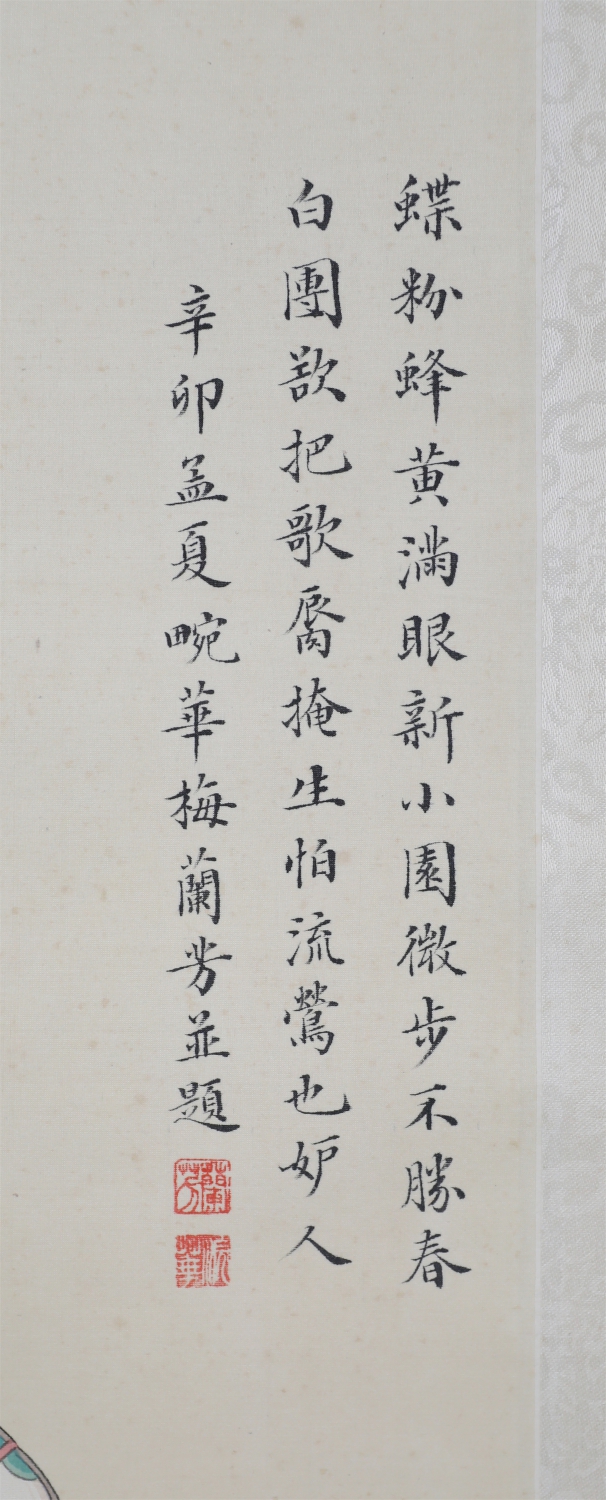 蝶粉蜂黄滿眼新小園微步不勝春
白團欲把歌脣掩生怕流鶯也妒人
辛卯孟夏畹華梅蘭芳並題
蘭芳